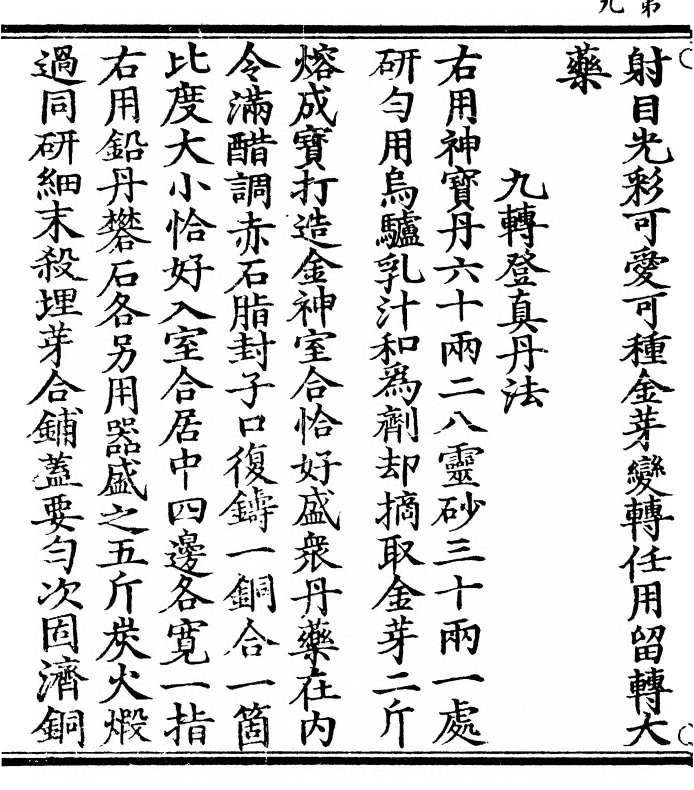 第九
射目光彩可愛可種金芽變轉任用留轉大
藥
九轉登真丹法
右用神寶丹六十兩二八靈砂三十兩一處
研勻用烏驢乳汁和為劑却摘取金芽二斤
熔成寶打造金神室合恰好盛衆丹藥在内
令滿醋調赤石脂封子口復鑄一銅合一箇
比度大小恰好入室合居中四邊各寬一指
右用鉛丹礬石各另用器盛之五斤炭火煅
過同研細末殺埋芽合鋪蓋要勻次固濟銅